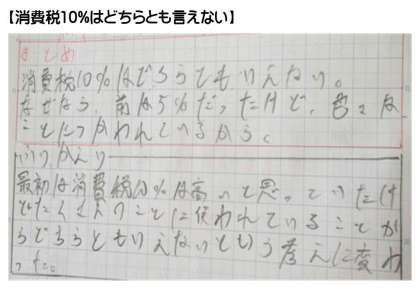 【消費税10%はどちらとも言えない】
まとめ
消費税10%はどちらともいえない。
なぜなら、前は5%だったけど、色々な
ことにつかわれているから。
ふりかえり
最初は消費税10%は高いと思っていたけ
どたくさんのことに使われていることか
らどちらともいえないともう考えに変わ
った。